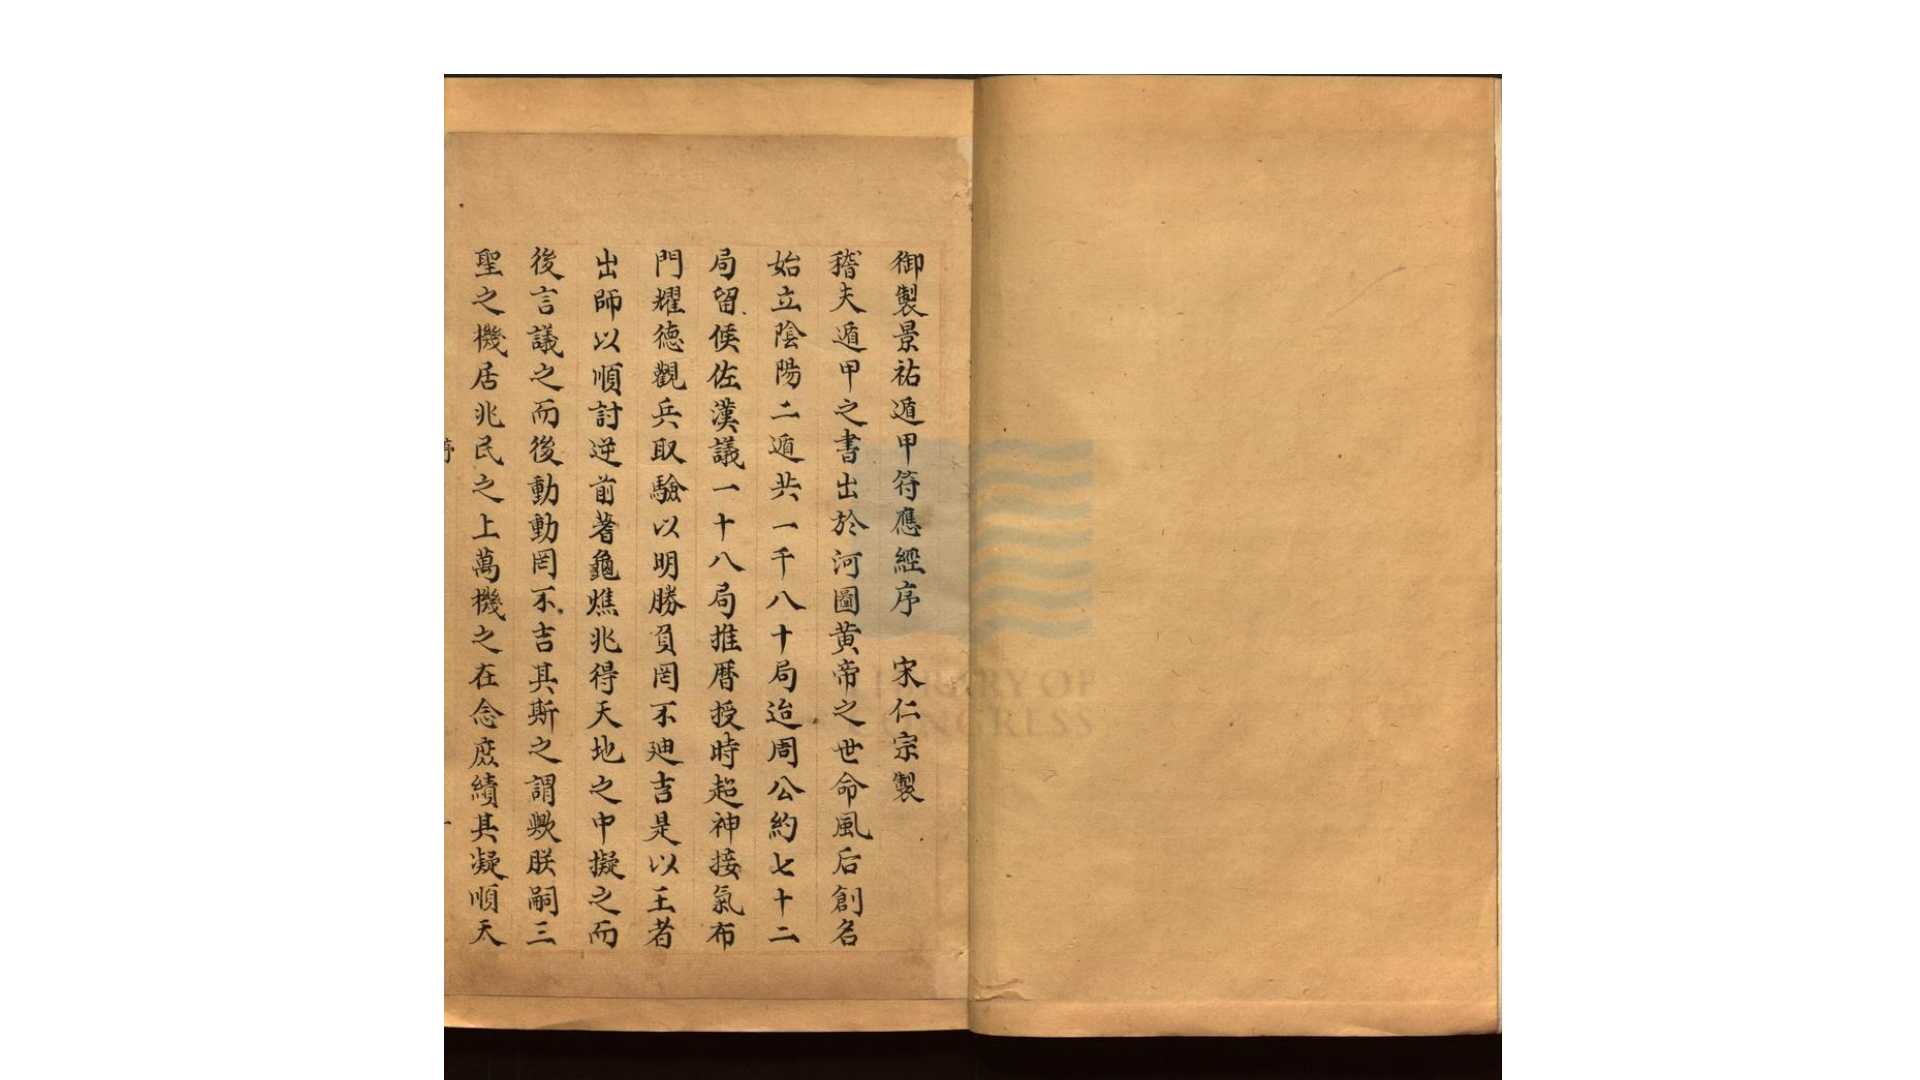 御製景祐遁甲符應經序　宋仁宗製
稽夫遁甲之書出於河圖黄帝之世命風后創名
始立陰陽二遁共一千八十局迨周公約七十二
局留侯佐漢議一十八局推曆授時超神接氣布
門耀德觀兵取驗以明勝負罔不迪吉是以王者
出師以順討逆前蓍龜燋兆得天地之中擬之而
後言議之而後動動罔不吉其斯之謂歟朕嗣三
聖之機居兆民之上萬機之在念庶績其凝順天
LIBRARY OF
CONGRESS